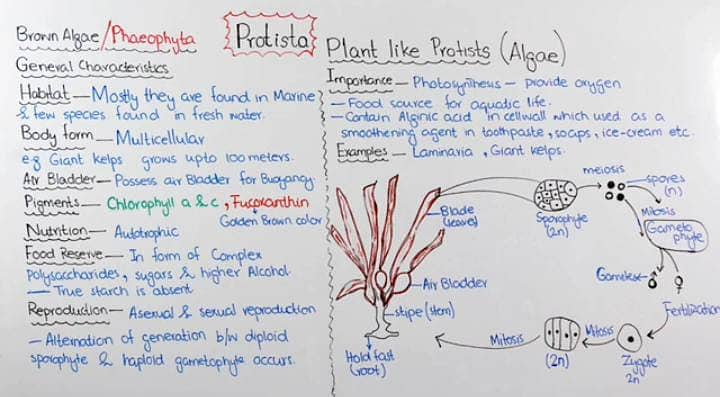 Brown Algae/Phaeophyta
Protista
Plant like Protists (Algae)
General Characteristics
Habitat — Mostly they are found in Marine
& few species found in fresh water.
Body form — Multicellular
e.g Giant kelps grows upto 100 meters.
Air Bladder — Possess air Bladder for Buoyancy.
Pigments — Chlorophyll a & c, Fucoxanthin
Golden Brown color
Nutrition — Autotrophic
Food Reserve — In form of Complex
polysaccharides, sugars & higher Alcohol.
— True starch is absent
Reproduction — Asexual & sexual reproduction
— Alternation of generation b/w diploid
sporophyte & haploid gametophyte occurs.
Importance — Photosynthesis — provide oxygen
— Food source for aquatic life.
— Contain Alginic acid in cellwall which used as a
smoothening agent in toothpaste, soaps, ice-cream etc.
Examples — Laminaria, Giant kelps.
Blade
(leaves)
Air Bladder
stipe (stem)
Hold fast
(root)
Sporophyte
(2n)
meiosis
spores
(n)
Mitosis
Gameto
phyte
Gametes
♂ ♀
Fertilization
Zygote
2n
Mitosis
(2n)
Mitosis